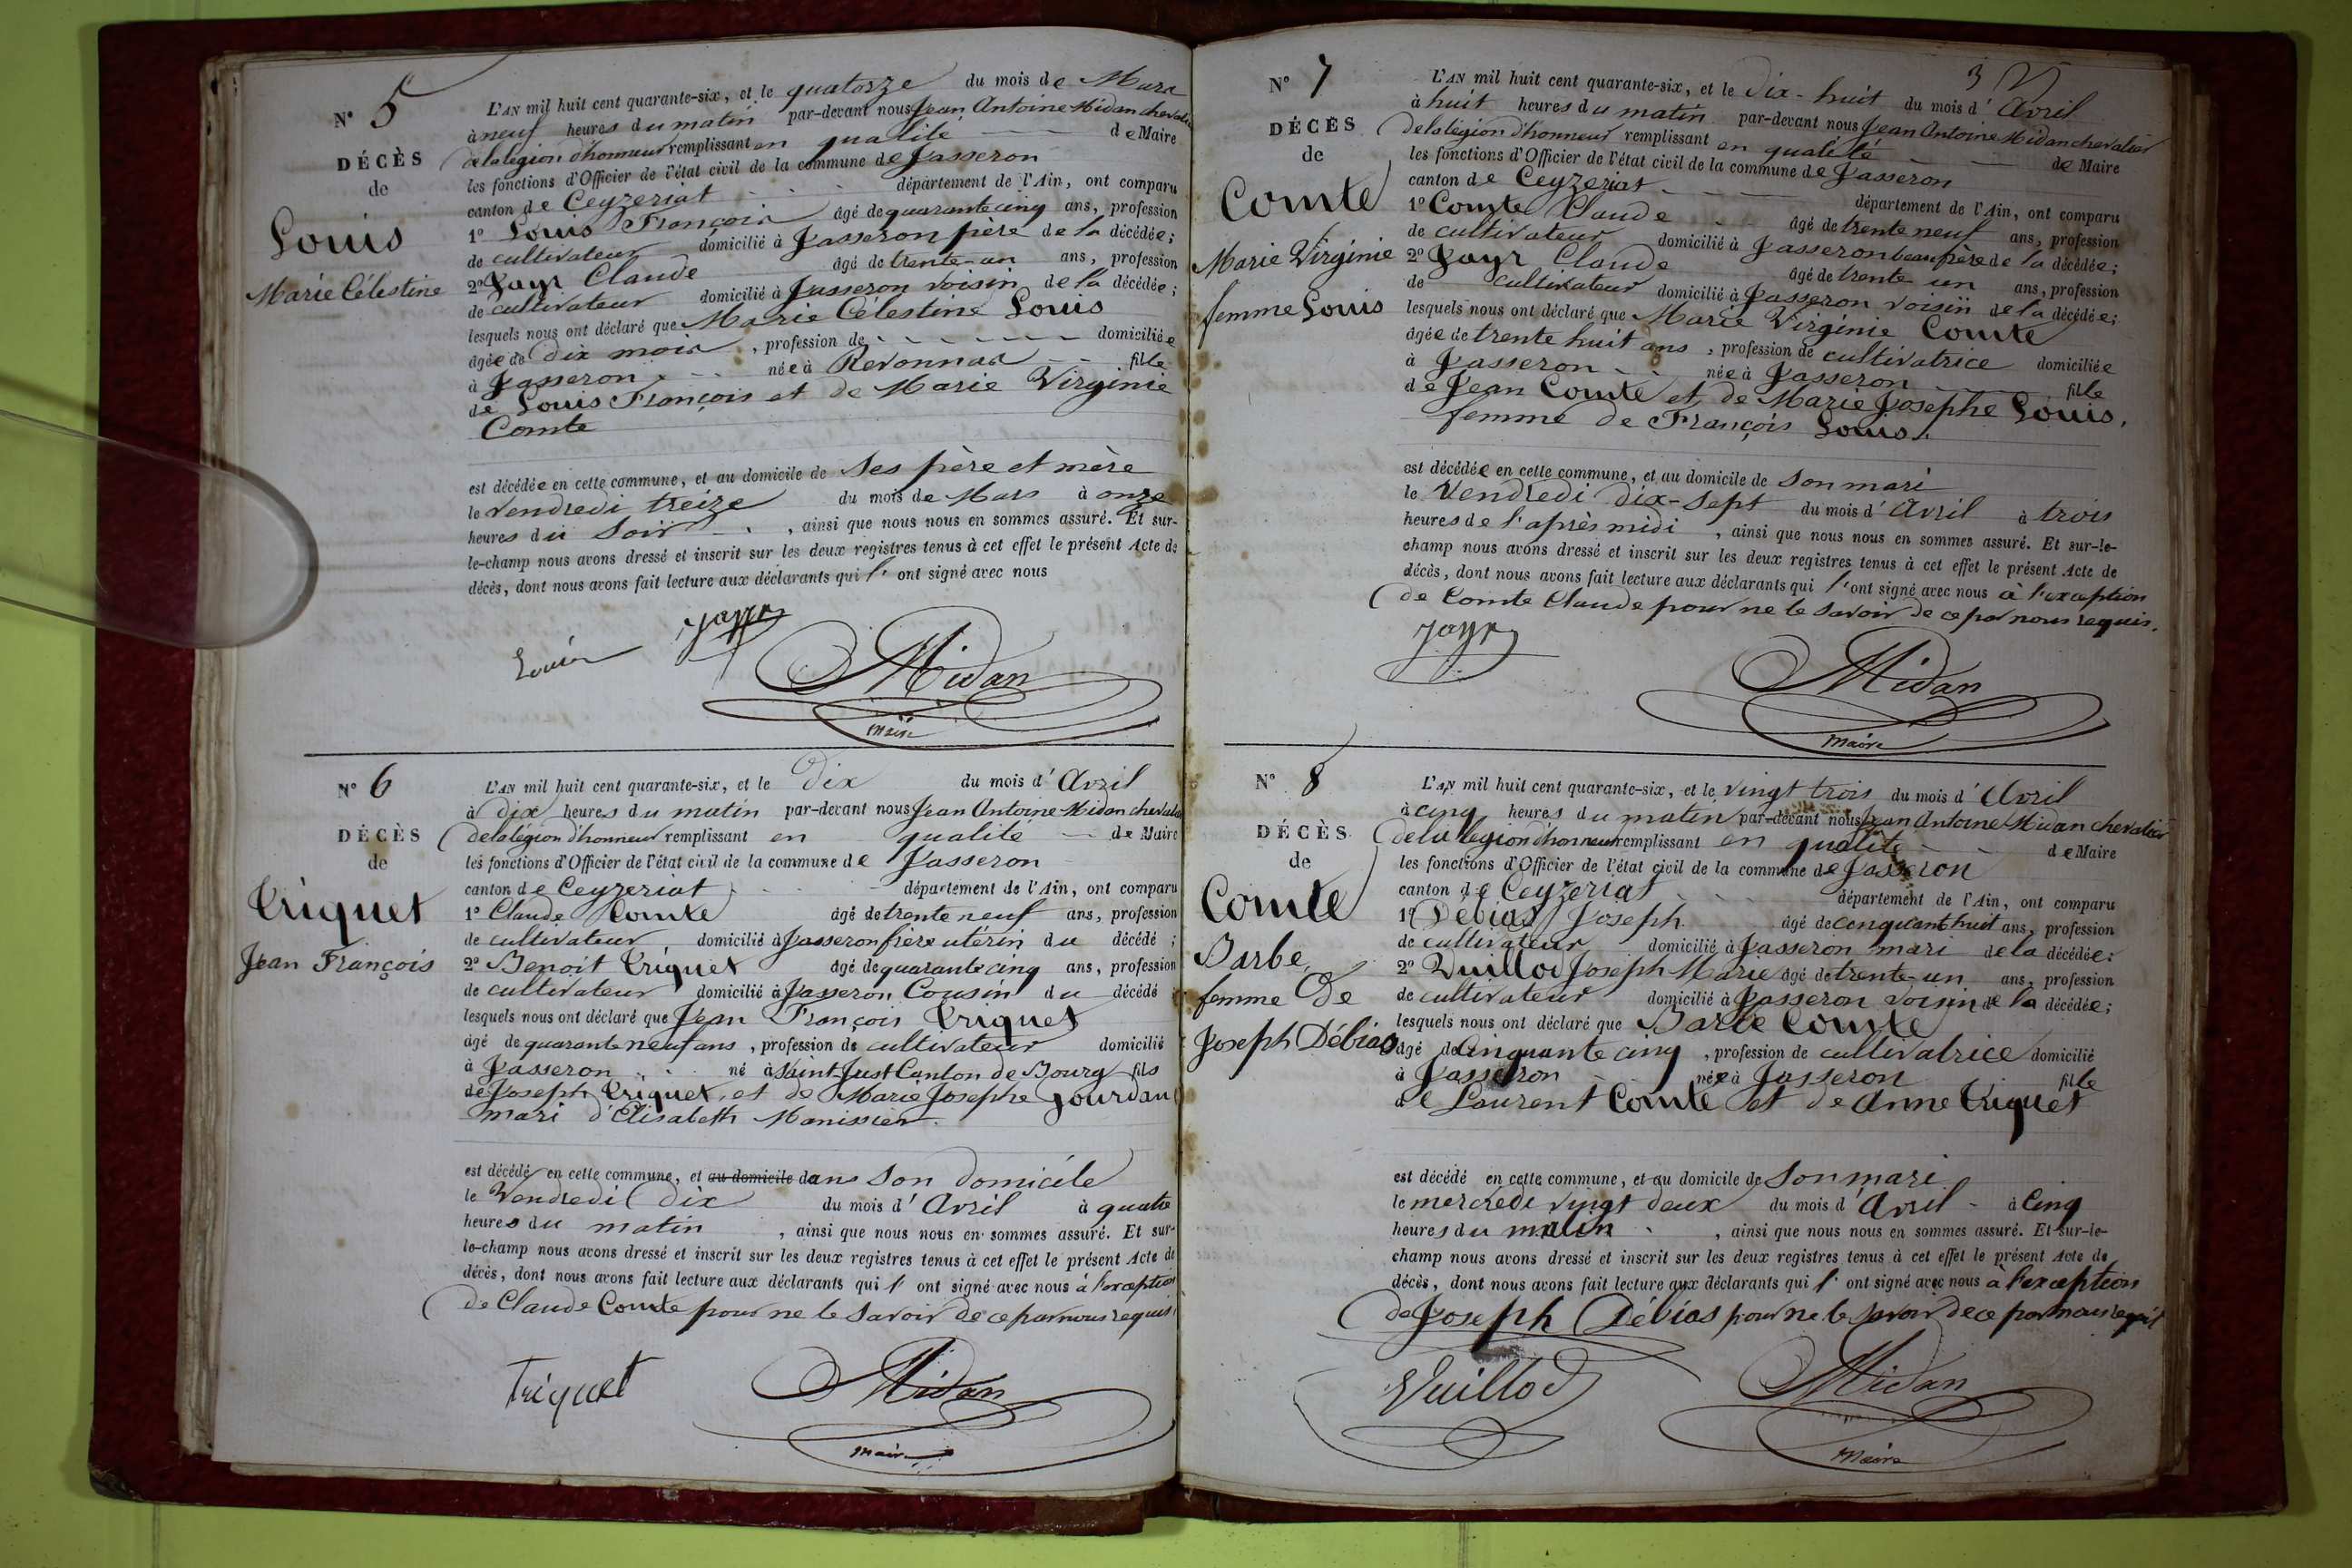 N° 5
DÉCÈS
de
Louis
Marie Célestine
L'AN mil huit cent quarante-six, et le quatorze du mois de Mars
à neuf heures du matin par-devant nous Jean Antoine Midan chevalier
de la légion d'honneur remplissant en qualité de Maire
les fonctions d'Officier de l'état civil de la commune de Jasseron
canton de Ceyzeriat département de l'Ain, ont comparu
1° Louis François âgé de quarante cinq ans, profession
de cultivateur domicilié à Jasseron père de la décédée;
2° Jayr Claude âgé de trente-un ans, profession
de cultivateur domicilié à Jasseron voisin de la décédée;
lesquels nous ont déclaré que Marie Célestine Louis
âgée de dix mois, profession de domiciliée
à Jasseron née à Revonnas fille
de Louis François et de Marie Virginie
Comte
est décédée en cette commune, et au domicile de ses père et mère
le vendredi treize du mois de Mars à onze
heures du soir, ainsi que nous nous en sommes assuré. Et sur-
le-champ nous avons dressé et inscrit sur les deux registres tenus à cet effet le présent Acte de
décès, dont nous avons fait lecture aux déclarants qui l'ont signé avec nous
Louis Jayr
Midan
maire
N° 6
DÉCÈS
de
Triquet
Jean François
L'AN mil huit cent quarante-six, et le dix du mois d'Avril
à dix heures du matin par-devant nous Jean Antoine Midan chevalier
de la légion d'honneur remplissant en qualité de Maire
les fonctions d'Officier de l'état civil de la commune de Jasseron
canton de Ceyzeriat département de l'Ain, ont comparu
1° Claude Comte âgé de trente neuf ans, profession
de cultivateur, domicilié à Jasseron frère utérin du décédé;
2° Benoit Triquet âgé de quarante cinq ans, profession
de cultivateur domicilié à Jasseron Cousin du décédé
lesquels nous ont déclaré que Jean François Triquet
âgé de quarante neuf ans, profession de cultivateur domicilié
à Jasseron né à Saint-Just Canton de Bourg fils
de Joseph Triquet et de Marie Josephe Jourdan
mari d'Elisabeth Manissier.
est décédé en cette commune, et au domicile dans son domicile
le Vendredi dix du mois d'Avril à quatre
heures du matin, ainsi que nous nous en sommes assuré. Et sur-
le-champ nous avons dressé et inscrit sur les deux registres tenus à cet effet le présent Acte de
décès, dont nous avons fait lecture aux déclarants qui l'ont signé avec nous à l'exception
de Claude Comte pour ne le savoir de ce par nous requis
Triquet Midan
maire
3
N° 7
DÉCÈS
de
Comte
Marie Virginie
femme Louis
L'AN mil huit cent quarante-six, et le dix-huit du mois d'Avril
à huit heures du matin par-devant nous Jean Antoine Midan chevalier
de la légion d'honneur remplissant en qualité de Maire
les fonctions d'Officier de l'état civil de la commune de Jasseron
canton de Ceyzeriat département de l'Ain, ont comparu
1° Comte Claude âgé de trente neuf ans, profession
de cultivateur domicilié à Jasseron beau frère de la décédée;
2° Jayr Claude âgé de trente-un ans, profession
de cultivateur domicilié à Jasseron voisin de la décédée;
lesquels nous ont déclaré que Marie Virginie Comte
âgée de trente huit ans, profession de cultivatrice domiciliée
à Jasseron née à Jasseron fille
de Jean Comte et de Marie Josephe Louis,
femme de François Louis.
est décédée en cette commune, et au domicile de son mari
le Vendredi dix-sept du mois d'Avril à trois
heures de l'après midi, ainsi que nous nous en sommes assuré. Et sur-le-
champ nous avons dressé et inscrit sur les deux registres tenus à cet effet le présent Acte de
décès, dont nous avons fait lecture aux déclarants qui l'ont signé avec nous à l'exception
de Comte Claude pour ne le savoir de ce par nous requis.
Jayr
Midan
maire
N° 8
DÉCÈS
de
Comte
Barbe,
femme de
Joseph Débias
L'AN mil huit cent quarante-six, et le vingt trois du mois d'Avril
à cinq heures du matin par-devant nous Jean Antoine Midan chevalier
de la légion d'honneur remplissant en qualité de Maire
les fonctions d'Officier de l'état civil de la commune de Jasseron
canton de Ceyzeriat département de l'Ain, ont comparu
1° Débias Joseph âgé de cinquant huit ans, profession
de cultivateur domicilié à Jasseron mari de la décédée;
2° Vuillod Joseph Marie âgé de trente-un ans, profession
de cultivateur domicilié à Jasseron voisin de la décédée;
lesquels nous ont déclaré que Barbe Comte
âgé de Cinquante cinq, profession de cultivatrice domicilié
à Jasseron née à Jasseron fille
de Laurent Comte et de Anne Triquet
est décédé en cette commune, et au domicile de son mari
le mercredi vingt deux du mois d'Avril à Cinq
heures du matin, ainsi que nous nous en sommes assuré. Et sur-le-
champ nous avons dressé et inscrit sur les deux registres tenus à cet effet le présent Acte de
décès, dont nous avons fait lecture aux déclarants qui l'ont signé avec nous a l'exception
de Joseph Débias pour ne le savoir de ce par nous requis
Vuillod Midan
maire